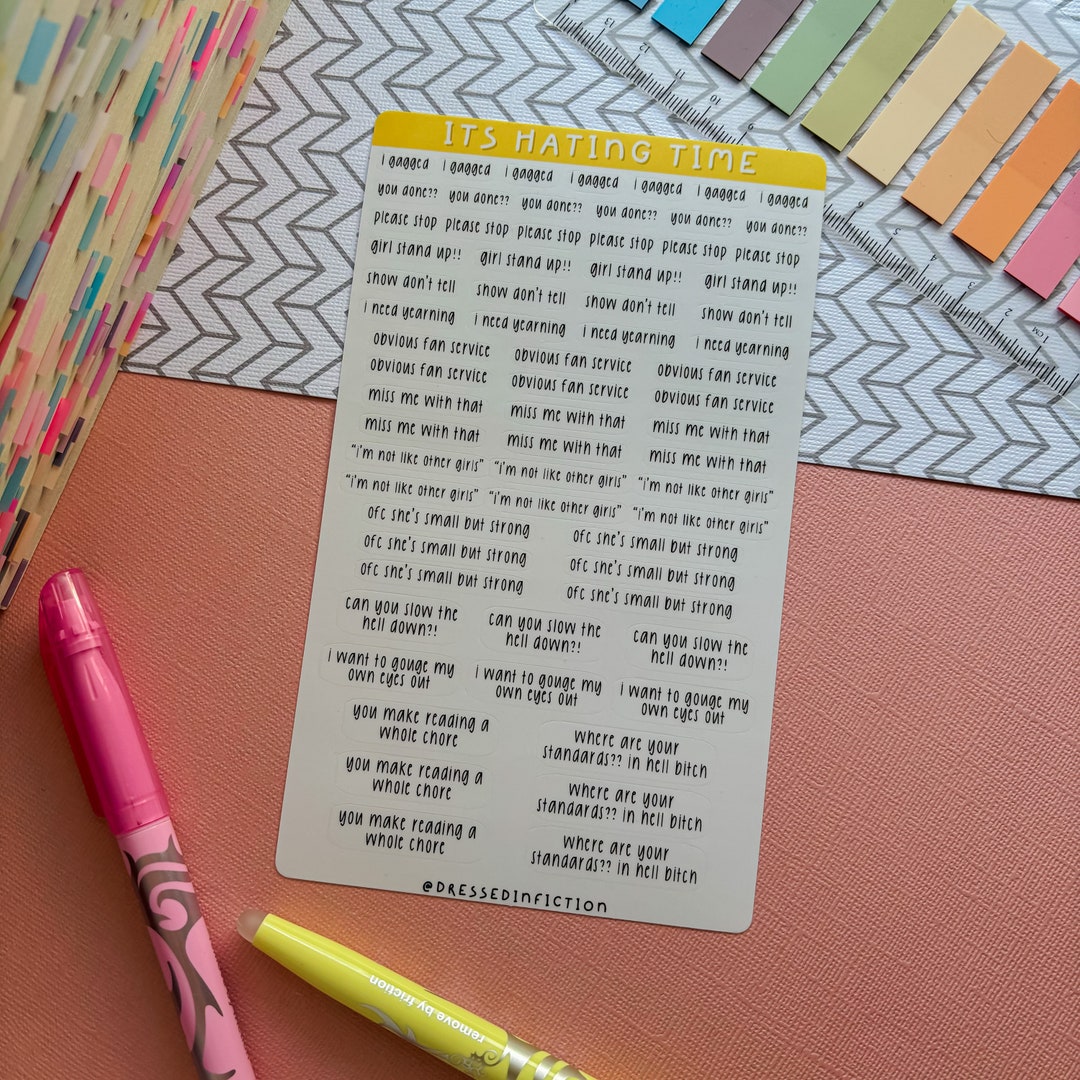 ITS HATING TIME
i gagged i gagged i gagged i gagged i gagged i gagged i gagged
you done?? you done?? you done?? you done?? you done?? you done??
please stop please stop please stop please stop please stop please stop
girl stand up!! girl stand up!! girl stand up!! girl stand up!!
show don't tell show don't tell show don't tell show don't tell
i need yearning i need yearning i need yearning i need yearning
obvious fan service obvious fan service obvious fan service
obvious fan service obvious fan service obvious fan service
miss me with that miss me with that miss me with that
miss me with that miss me with that miss me with that
"i'm not like other girls" "i'm not like other girls" "i'm not like other girls"
"i'm not like other girls" "i'm not like other girls" "i'm not like other girls"
ofc she's small but strong ofc she's small but strong
ofc she's small but strong ofc she's small but strong
ofc she's small but strong ofc she's small but strong
can you slow the can you slow the can you slow the
hell down?! hell down?! hell down?!
i want to gouge my i want to gouge my i want to gouge my
own eyes out own eyes out own eyes out
you make reading a where are your
whole chore standards?? in hell bitch
you make reading a where are your
whole chore standards?? in hell bitch
you make reading a where are your
whole chore standards?? in hell bitch
@DRESSEDINFICTION
remove by friction
13 12 11 10 6 5 4 3 2 1CM